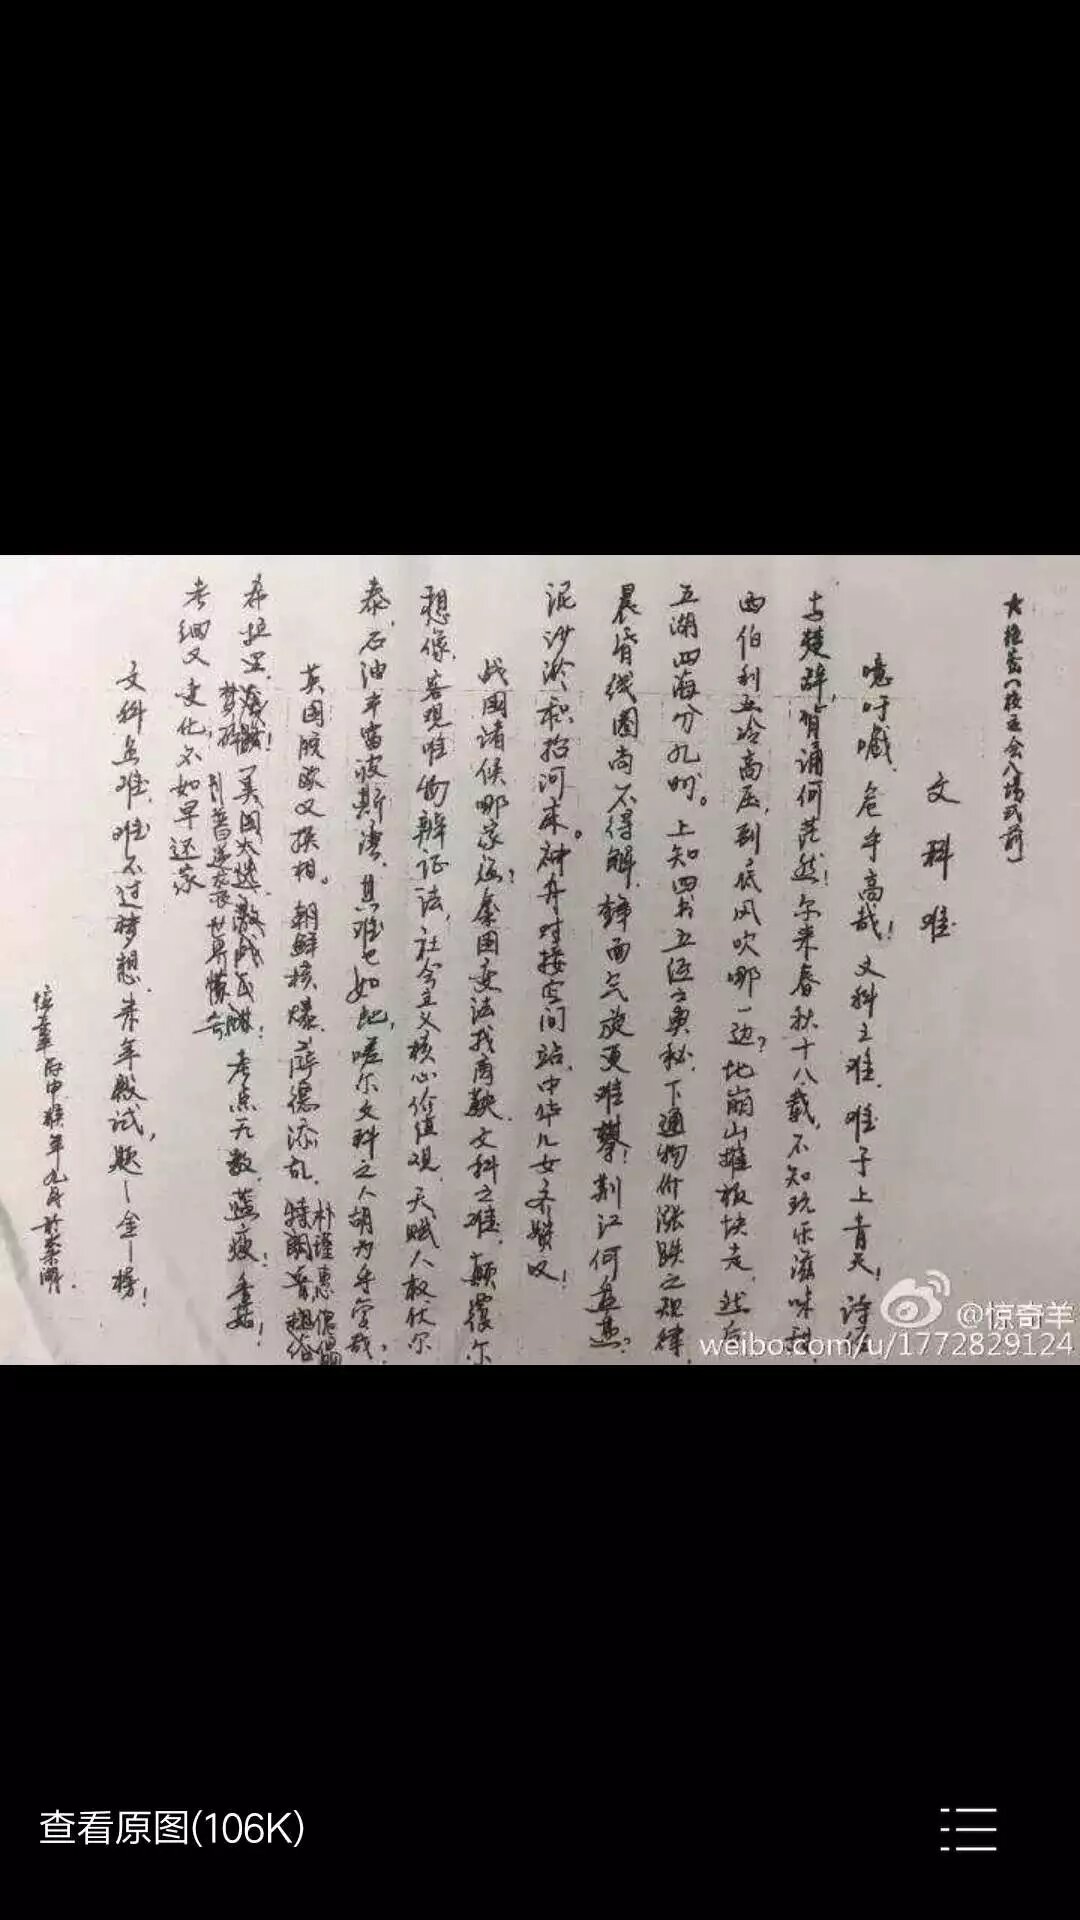 文科难
噫吁嚱，危乎高哉！文科之难，难于上青天！诗经
与楚辞，背诵何茫然！尔来春秋十八载，不知玩乐滋味甜。
西伯利亚冷高压，到底风吹哪一边？地崩山摧板块走，然后
五湖四海分九州。上知四书五经之奥秘，下通物价涨跌之规律，
晨昏线圈尚不得解，锋面气旋更难攀！荆江何盘盘？
泥沙淤积招河床。神舟对接空间站，中华儿女齐赞叹！
战国诸侯哪家强？秦国变法找商鞅。文科之难，颠覆尔
想像，客观唯物辨证法，社会主义核心价值观，天赋人权伏尔
泰，石油丰富波斯湾，其难也如此，嗟尔文科之人胡为乎学哉？
英国脱欧又换相。朝鲜核爆，萨德添乱，特朗普
朴谨惠傀儡
希拉里，美国大选，激战正酣！考点无数，蓝瘦！香菇！
考纲又变化，不如早还家
文科虽难，难不过梦想，来年殿试，题金榜！
丙申猴年九月於
@惊奇羊
weibo.com/u/1772829124
查看原图(106K)